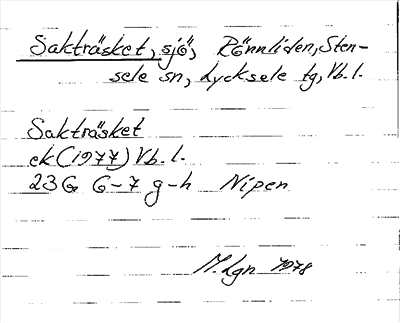 Sakträsket, sjö, Rönnliden, Sten-
sele sn, Lycksele tg, Vb. l.
Sakträsket
ek (1977) Vb. l.
23G 6-7 g-h Nipen
M. Lgn 1978